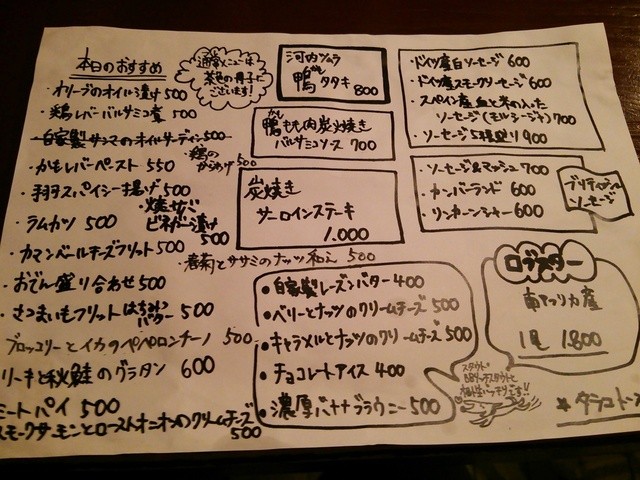 本日のおすすめ
通常メニューは
茶色の冊子に
ございます!
・オリーブのオイル漬け 500
・鶏レバーバルサミコ煮 500
・自家製サンマのオイルサーディン 500
・鶏の
からあげ 500
・かもレバーペースト 550
・手羽スパイシー揚げ 500
・焼サバ
ビネガー漬け
500
・ラムカツ 500
・カマンベールチーズフリット 500
・春菊とササミのナッツ和え 500
・おでん盛り合わせ 500
・さつまいもフリット はちみつ
バター 500
ブロッコリーとイカのペペロンチーノ 500
リーキと秋鮭のグラタン 600
ミートパイ 500
スモークサーモンとローストオニオンのクリームチーズ
500
河内ツムラ
鴨 タタキ
800
鴨もも肉炭火焼き
バルサミコソース 700
炭焼き
サーロインステーキ
1.000
・ドイツ産白ソーセージ 600
・ドイツ産スモークソーセージ 600
・スペイン産血と米の入った
ソーセージ(モルシージャ) 700
・ソーセージ5種盛り 900
・ソーセージ&マッシュ 700
・カンバーランド 600
・リンカーンシャー 600
ブリティッシュ
ソーセージ
ロブスター
南アフリカ産
1尾 1.800
・自家製レーズンバター 400
・ベリーとナッツのクリームチーズ 500
・キャラメルとナッツのクリームチーズ 500
・チョコレートアイス 400
・濃厚バナナブラウニー 500
スタウト